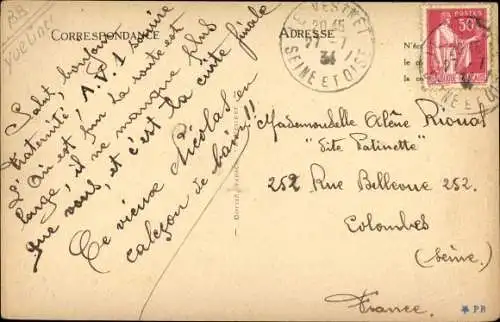 BB
Yvelines
CORRESPONDANCE
Salut, bonjour
Fraternité, A.V.1 sourire
L'Ain est sur la route est
large, il ne manque plus
que vous, et c'est la cuite finale
Ce vieux Nicolas en
caleçon de bain!!
ADRESSE
VESINET
20 45
27 - 7
34
SEINE ET OISE
POSTES
50c
N'é
le c
la c
Mademoiselle Hélène Rious
"Site Patinette"
252 Rue Bellevue 252.
Colombes
(Seine)
France.
PR